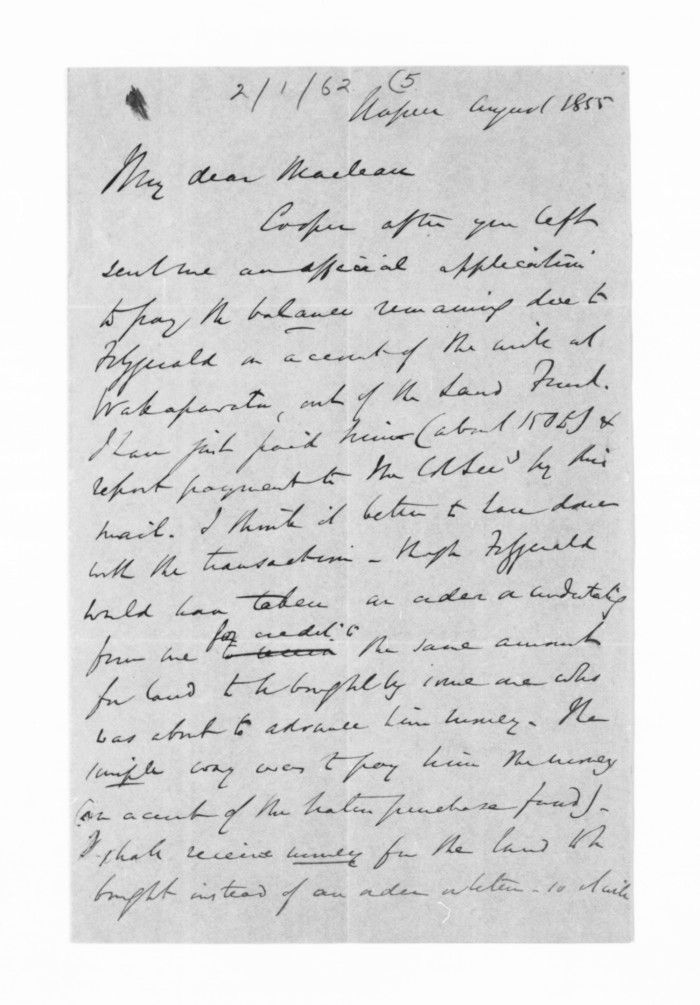 2/1/62 (5
Napier August 1855
My dear Maclean
Cooper after you left
sent me an official application
to pay the balance remaining due to
Fitzgerald on account of the mill at
Wakaparata, out of the Land Fund.
I have just paid him (about 150£) &
report payment to the Col Secy by this
mail. I think it better to have done
with the transaction - though Fitzgerald
would have taken an order or undertaking
from me for credit to the same amount
for land to be bought by some one who
was about to advance him money. The
simple way was to pay him the money
(on account of the native purchase fund).
I shall receive money for the land to be
bought instead of an order on - so while